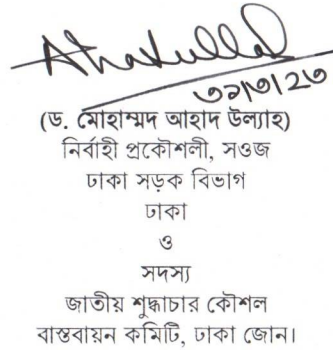 Ahadullah
৩১/৩/২৩
(ড. মোহাম্মদ আহাদ উল্যাহ)
নির্বাহী প্রকৌশলী, সওজ
ঢাকা সড়ক বিভাগ
ঢাকা
ও
সদস্য
জাতীয় শুদ্ধাচার কৌশল
বাস্তবায়ন কমিটি, ঢাকা জোন।